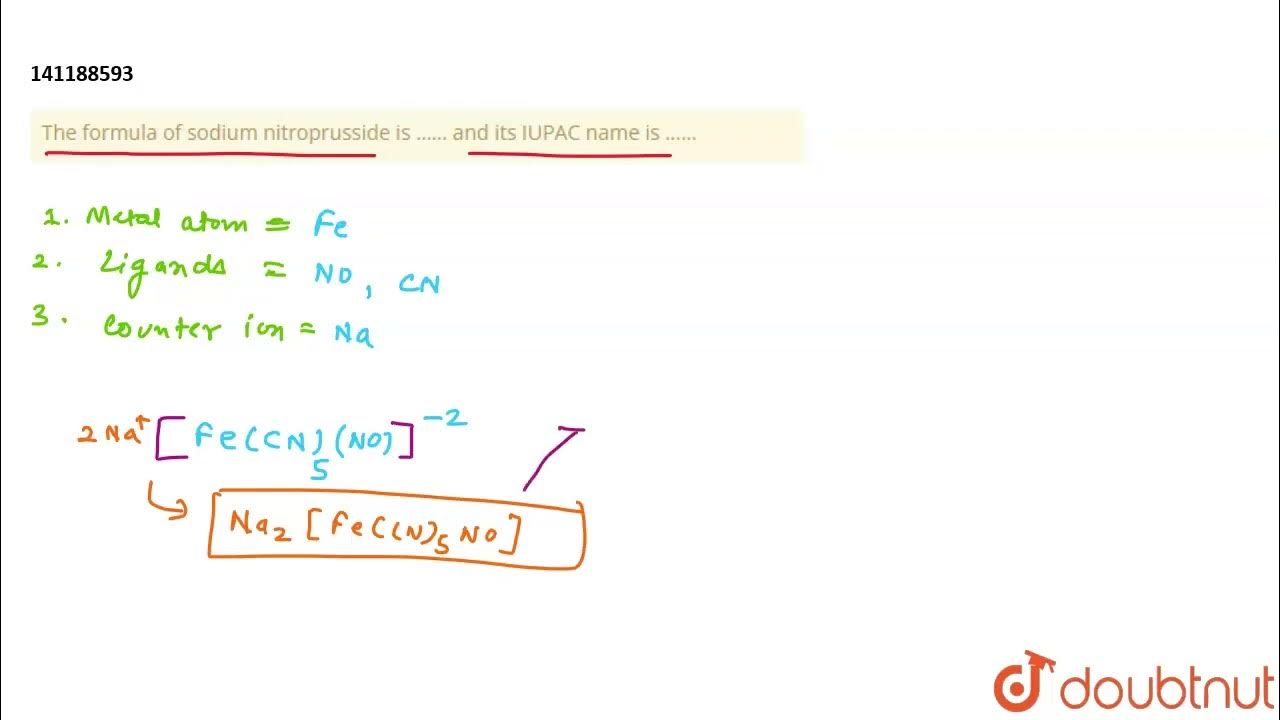 141188593
The formula of sodium nitroprusside is ...... and its IUPAC name is ......
1. Metal atom = Fe
2. Ligands = NO, CN
3. Counter ion = Na
2Na⁺ [Fe(CN)₅(NO)]⁻²
Na₂[Fe(CN)₅NO]
doubtnut